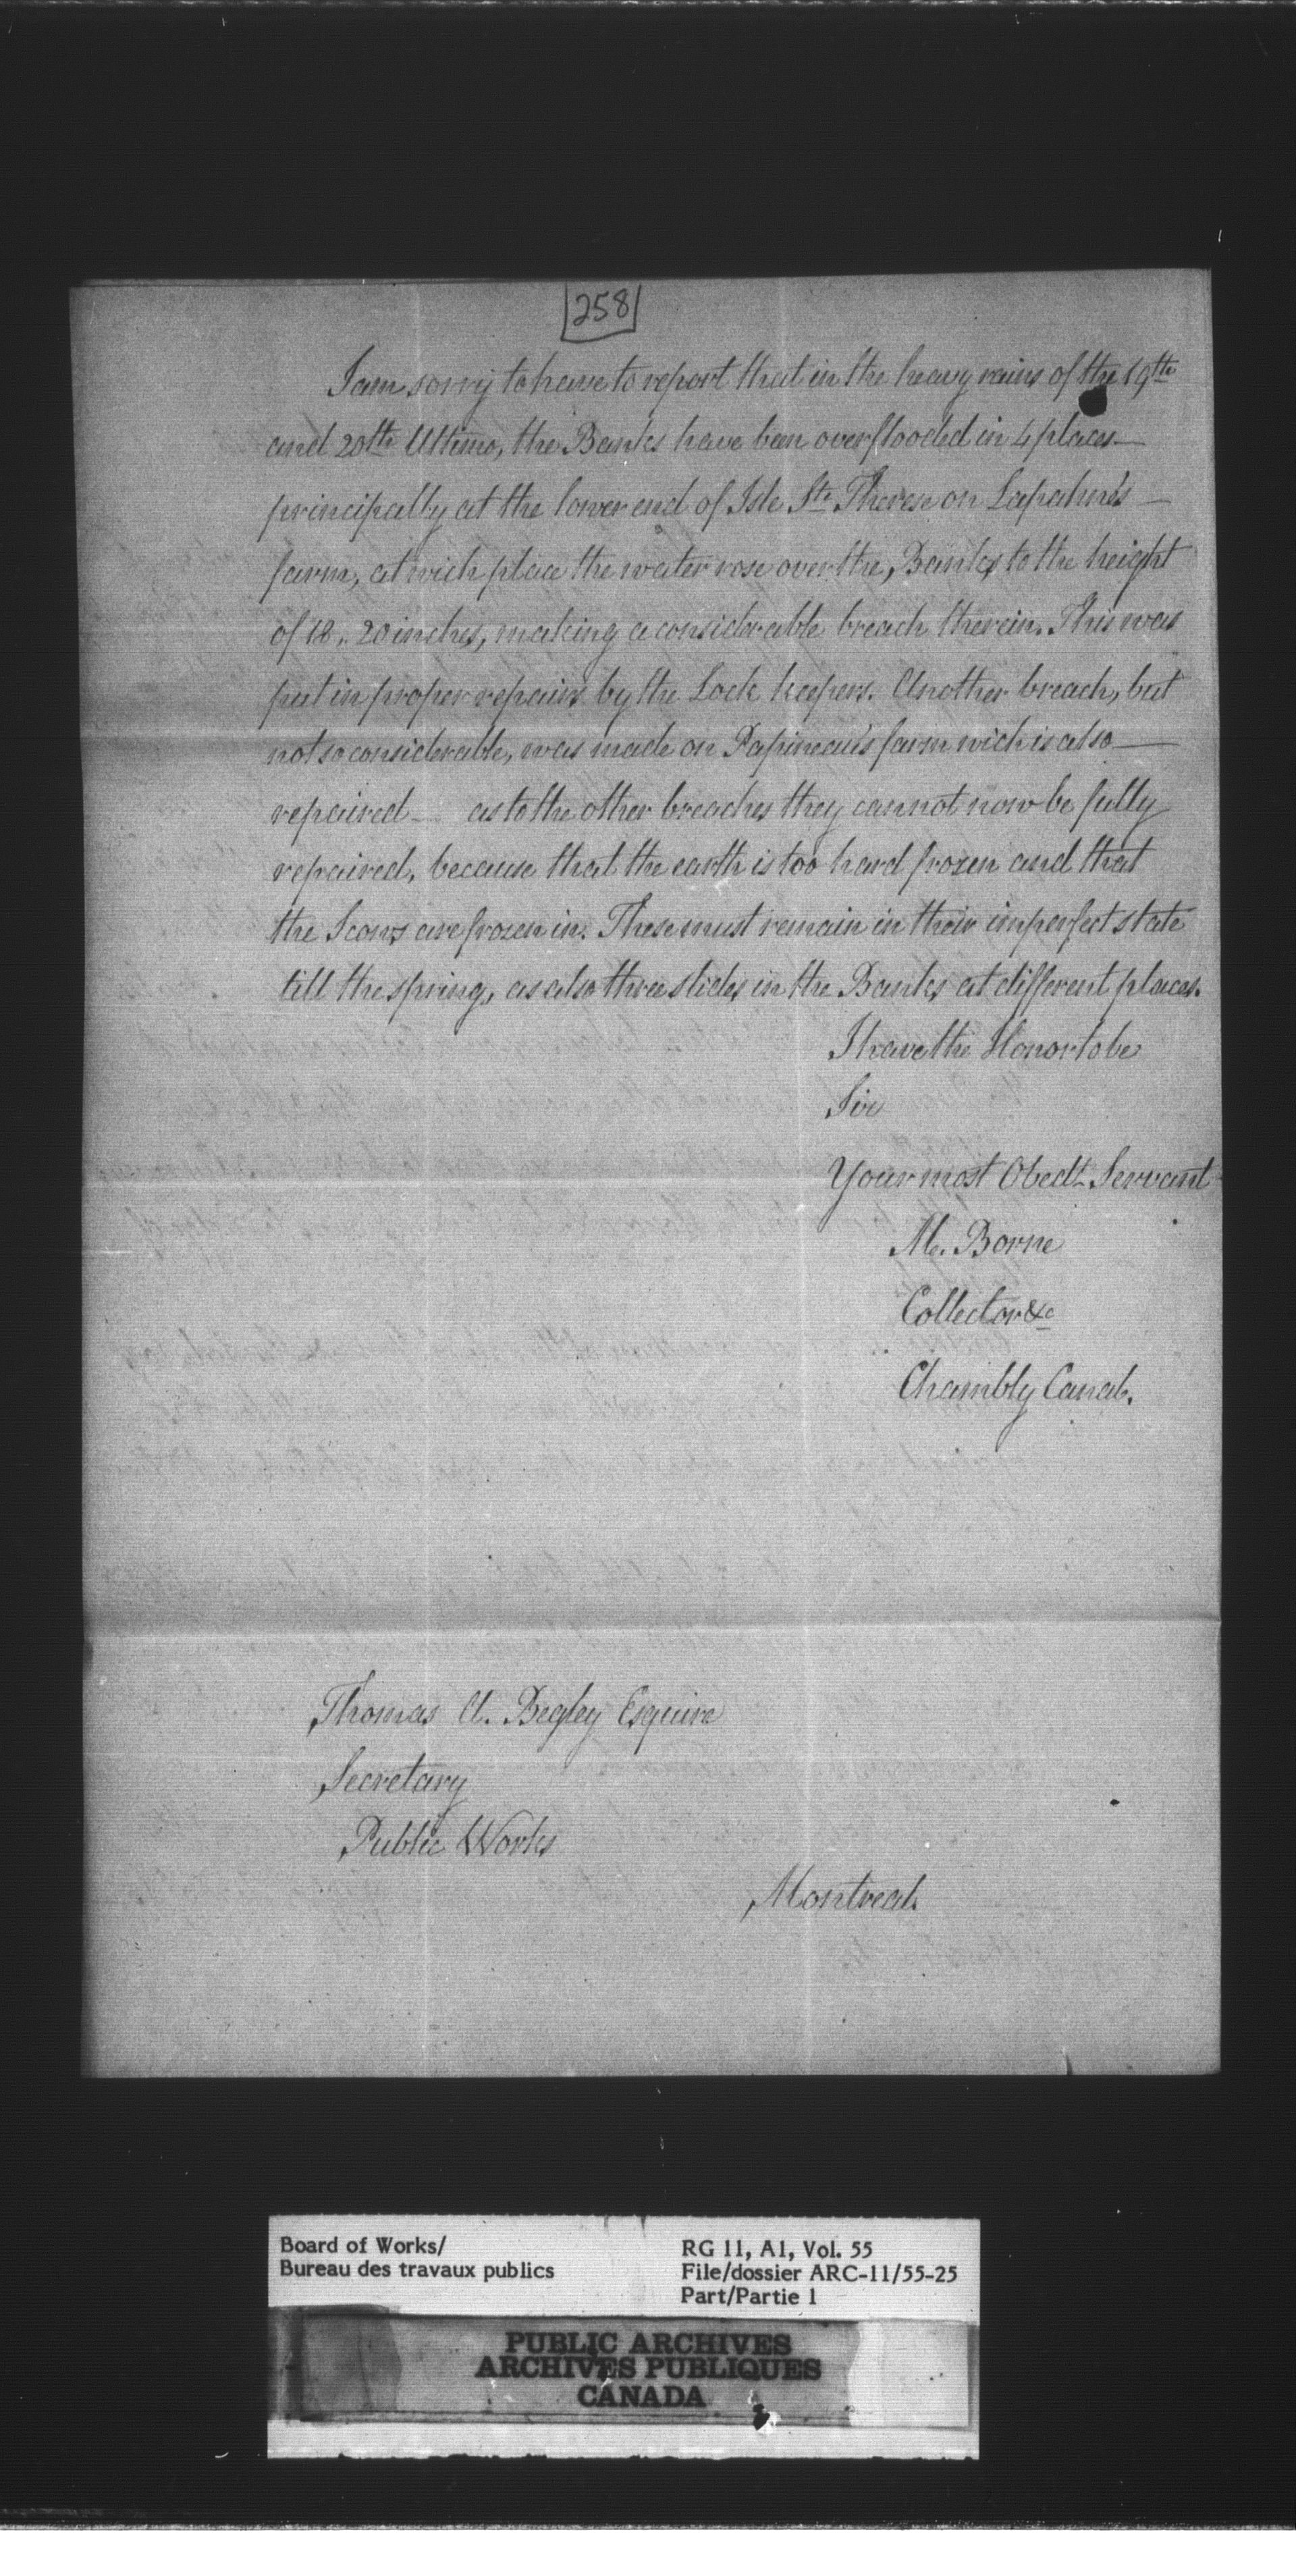 258
I am sorry to have to report that in the heavy rains of the 19th
and 20th Ultimo, the Banks have been overflooded in 4 places—
principally at the lower end of Isle Ste Therese on Lapalme's—
farm, at wich place the water rose over the, Banks to the height
of 18 . 20 inches, making a considerable breach therein. This was
put in proper repairs by the Lock keepers. Another breach, but
not so considerable, was made on Papineau's farm wich is also—
repaired— as to the other breaches they cannot now be fully
repaired, because that the earth is too hard frozen and that
the Scows are frozen in. These must remain in their imperfect state
till the spring, as also three slides in the Banks at different places.
I have the Honor to be
Sir
Your most Obedt Servant
M. Borne
Collector &c
Chambly Canal.
Thomas A. Begley Esquire
Secretary
Public Works
Montreal.
Board of Works/
Bureau des travaux publics
RG 11, A1, Vol. 55
File/dossier ARC-11/55-25
Part/Partie 1
PUBLIC ARCHIVES
ARCHIVES PUBLIQUES
CANADA